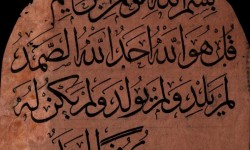 بسم الله الرحمن الرحيم
قل هو الله احد الله الصمد
لم يلد ولم يولد ولم يكن له